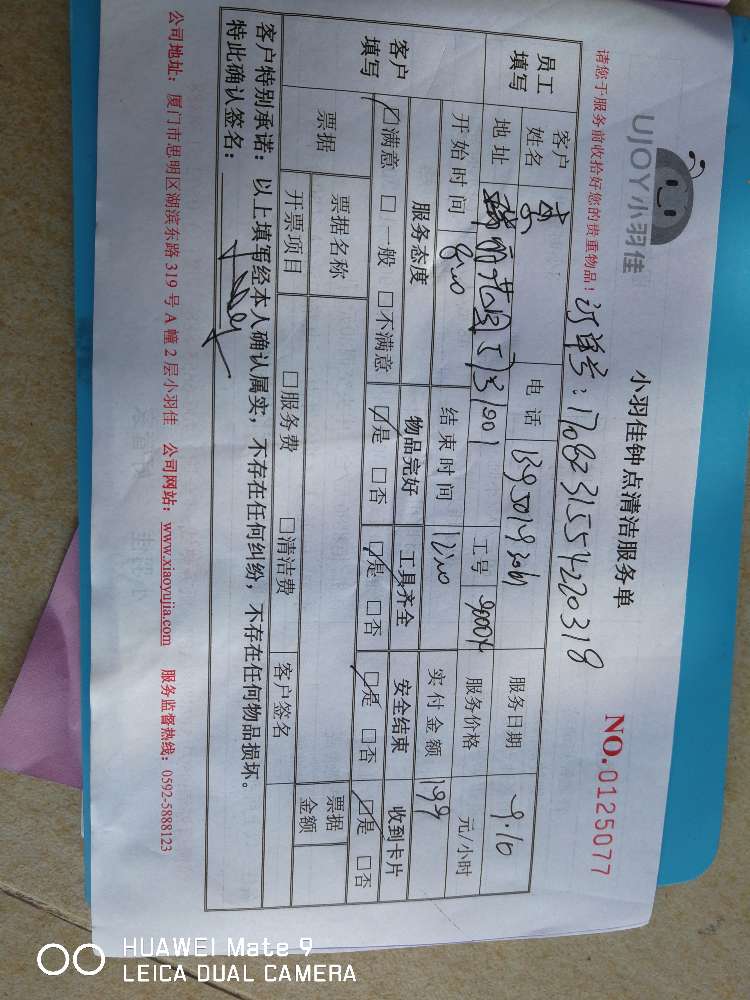 UJOY小羽佳
小羽佳钟点清洁服务单
NO.0125077
请您于服务前收拾好您的贵重物品！ 订单号：
员工填写 客户姓名 李 电话 服务日期 9.10
地址 工号 服务价格 元/小时
开始时间 8:00 结束时间 12:00 实付金额 199
客户填写 服务态度 物品完好 工具齐全 安全结束 收到卡片
☑满意 □一般 □不满意 ☑是 □否 ☑是 □否 ☑是 □否 ☑是 □否
票据 票据名称 票据金额
开票项目 □服务费 □清洁费 客户签名
客户特别承诺：以上填写经本人确认属实，不存在任何纠纷，不存在任何物品损坏。
特此确认签名：
公司地址：厦门市思明区湖滨东路319号A幢2层小羽佳 公司网站：www.xiaoyujia.com 服务监督热线：0592-5888123
HUAWEI Mate 9
LEICA DUAL CAMERA